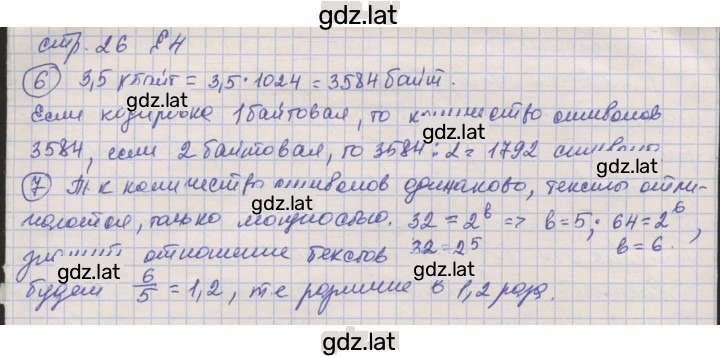 gdz.lat
стр. 26 §4
6 3,5 кбайт = 3,5·1024 = 3584 байт.
gdz.lat gdz.lat
Если кодировка 1 байтовая, то количество символов
gdz.lat
3584, если 2 байтовая, то 3584:2 = 1792 символы
gdz.lat gdz.lat
7 Т.к количество символов одинаково, тексты отли-
gdz.lat
чаются, только мощностью. 32 = 2^b => b=5; 64=2^6,
значит отношение текстов 32=2^5 b=6.
gdz.lat gdz.lat
будет 6/5 = 1,2, т.е различие в 1,2 раза.
gdz.lat